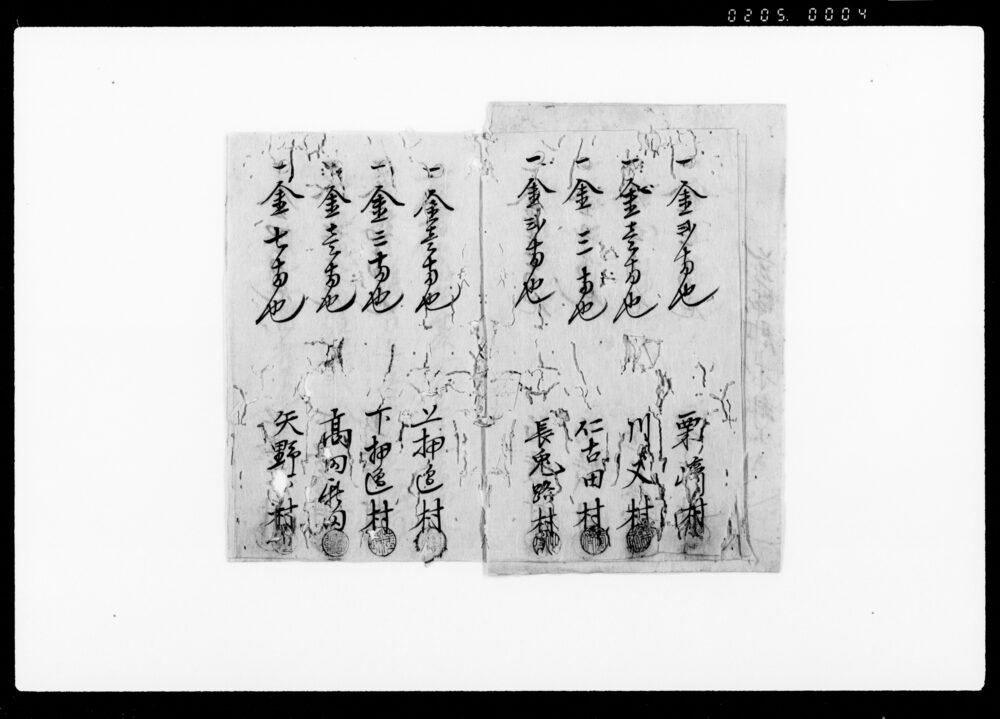 0205. 0004
一金弐両也 栗崎村
一金壱両也 川又村
一金三両也 仁古田村
一金弐両也 長兎路村
一金壱両也 上押辺村
一金三両也 下押辺村
一金壱両也 高田新田
一金七両也 矢野下村